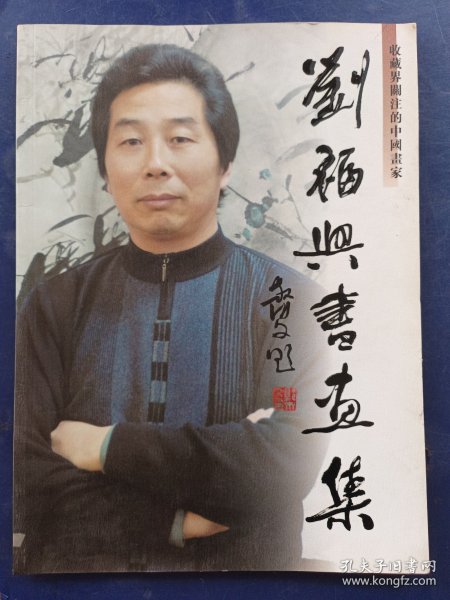 收藏界關注的中國畫家
劉福興書画集
孔夫子旧书网
www.kongfz.com